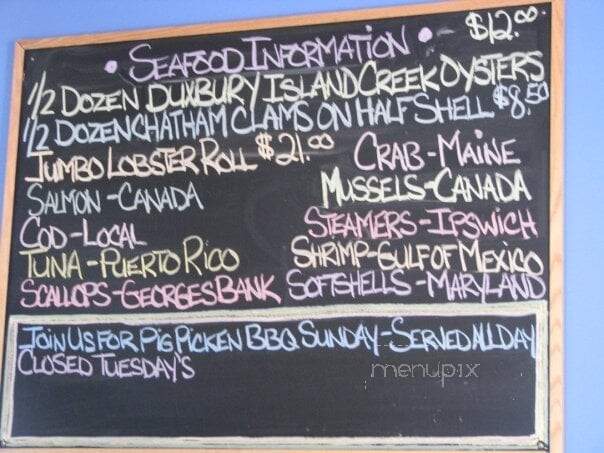 • SEAFOOD INFORMATION •
$12.00
1/2 DOZEN DUXBURY ISLAND CREEK OYSTERS
1/2 DOZEN CHATHAM CLAMS ON HALF SHELL $8.50
JUMBO LOBSTER ROLL $21.00
CRAB-MAINE
SALMON-CANADA
MUSSELS-CANADA
COD-LOCAL
STEAMERS-IPSWICH
TUNA-PUERTO RICO
SHRIMP-GULF OF MEXICO
SCALLOPS-GEORGES BANK
SOFTSHELLS-MARYLAND
JOIN US FOR PIG PICKEN BBQ SUNDAY-SERVED ALL DAY
CLOSED TUESDAY'S
menupix